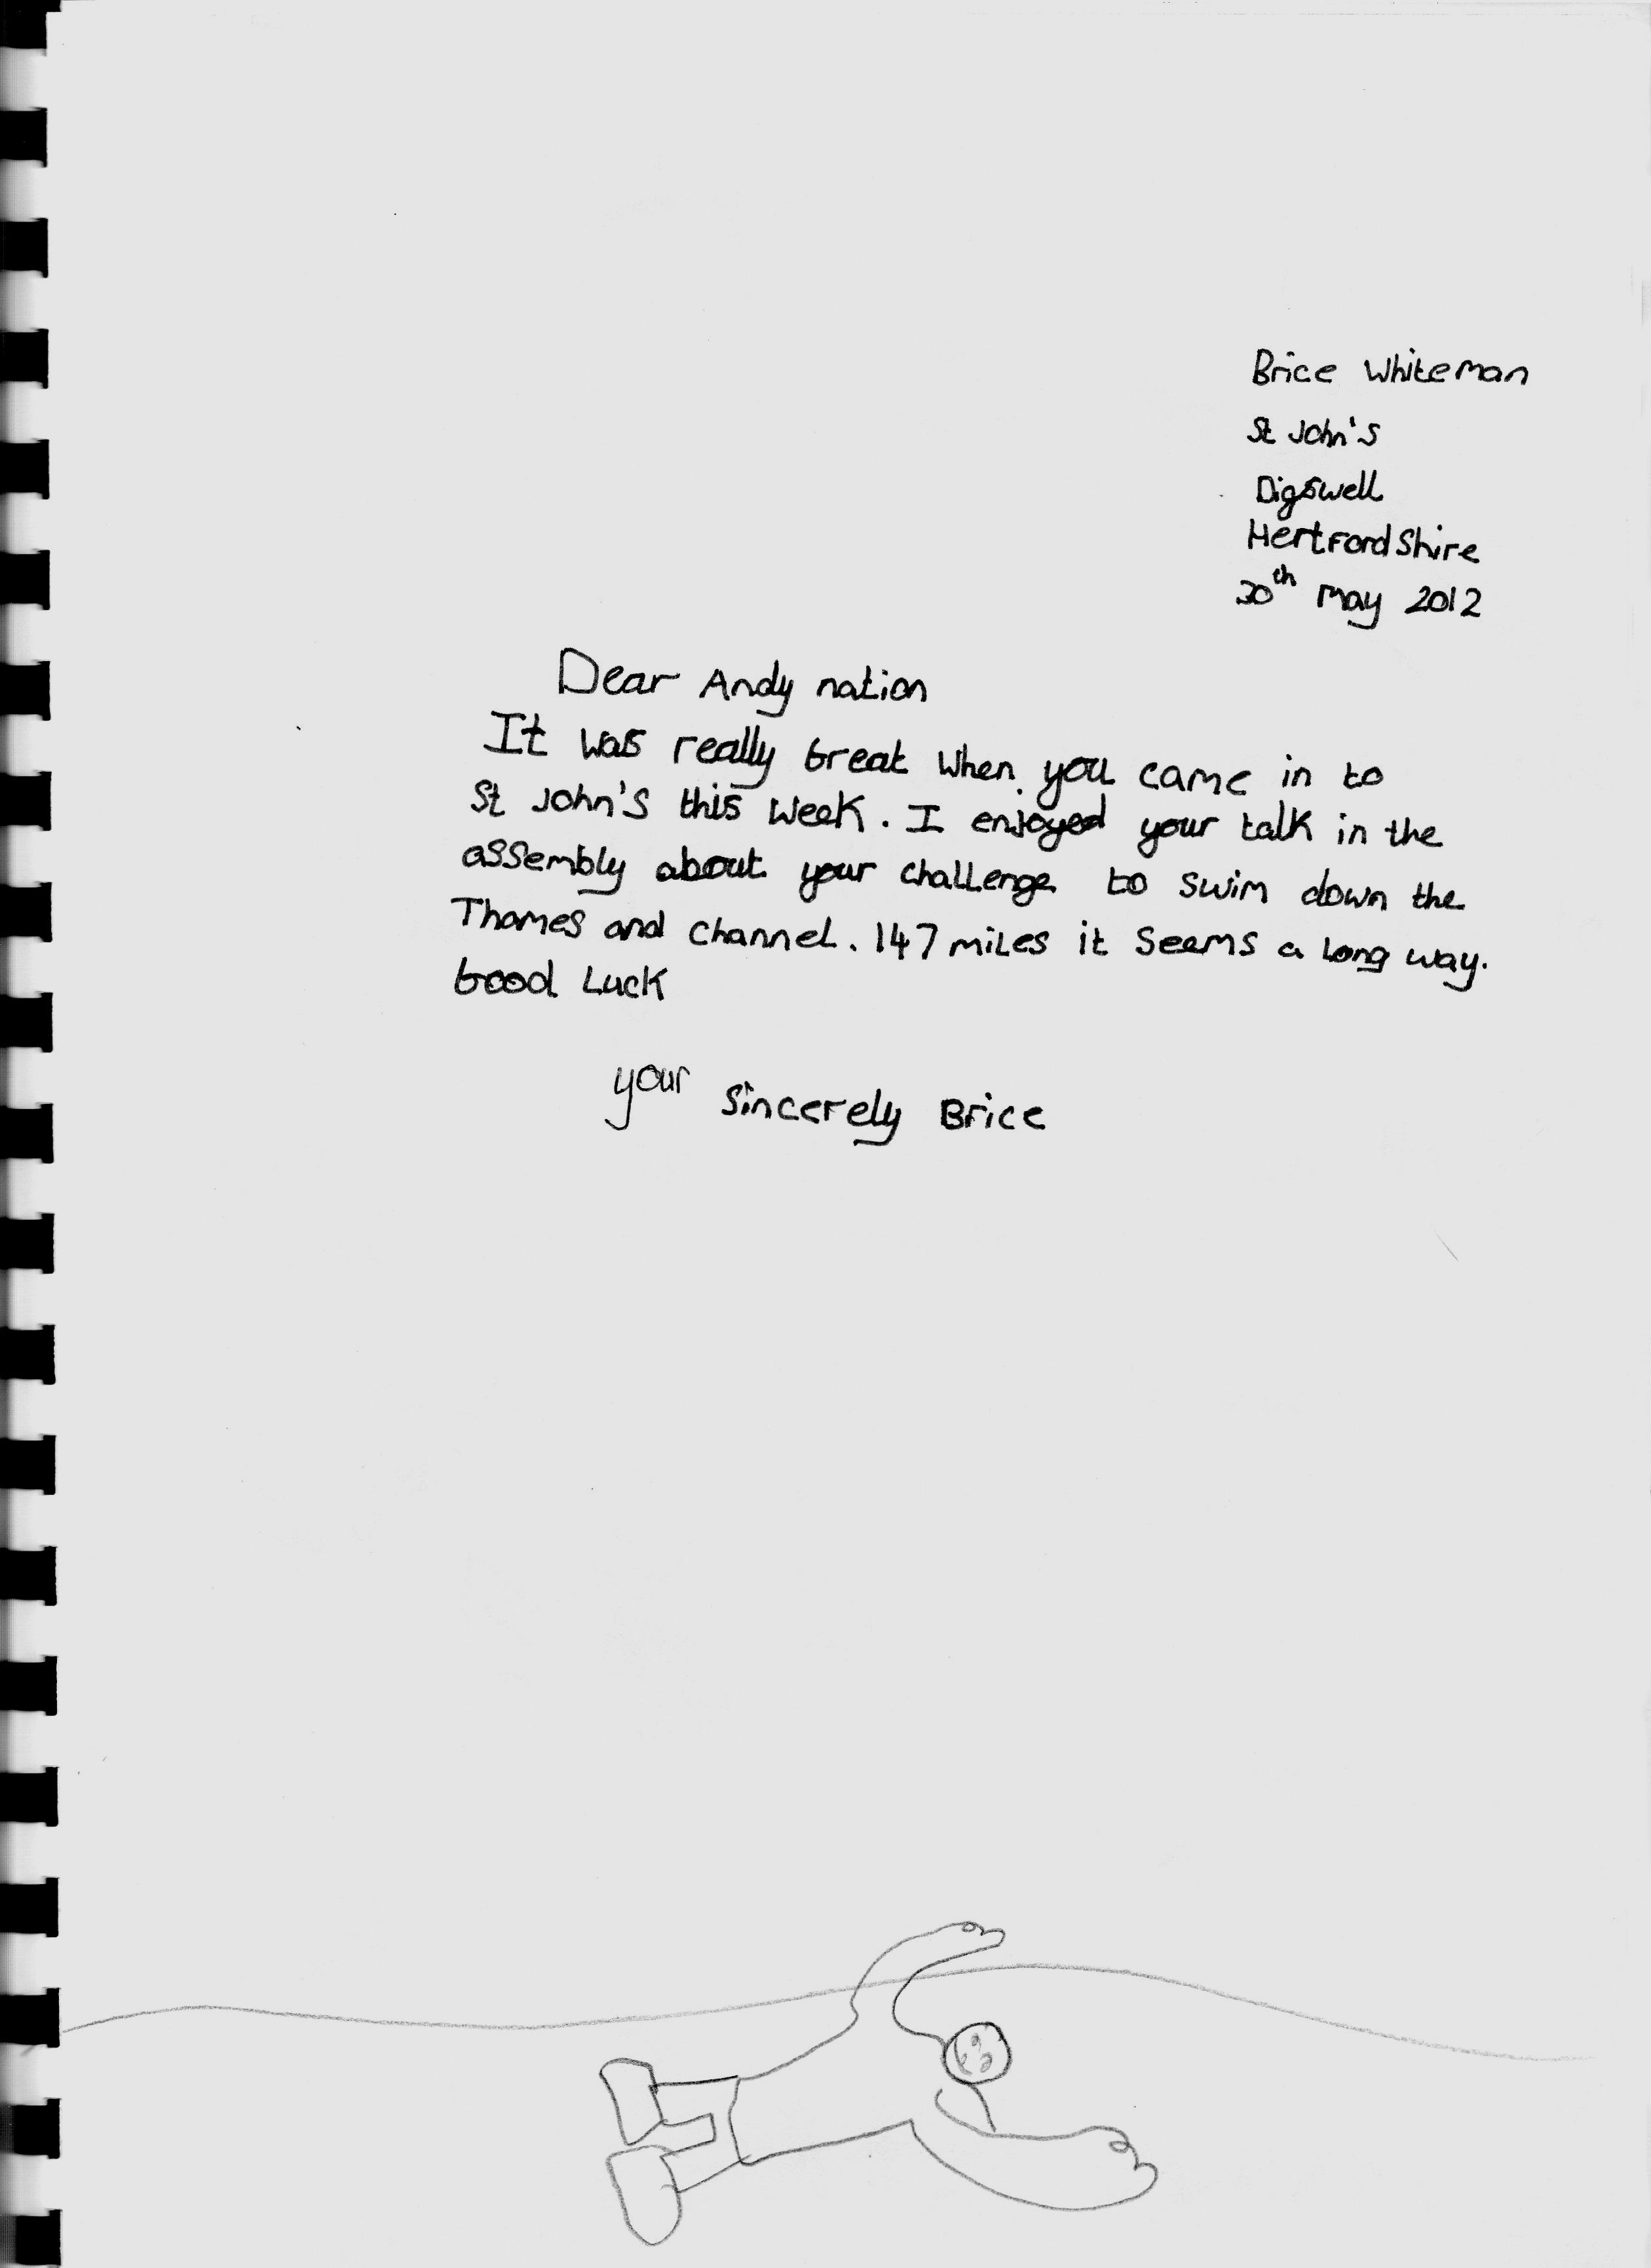 Brice Whiteman
St John's
Digswell
HertFordShire
30th May 2012
Dear Andy nation
It was really Great when you came in to
St John's this week. I enjoyed your talk in the
assembly about your challenge to swim down the
Thames and Channel. 147 miles it seems a long way.
Good Luck
your sincerely Brice